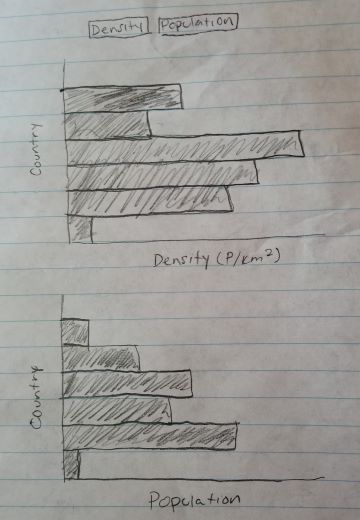 Density Population
Country
Density (P/km²)
Country
Population